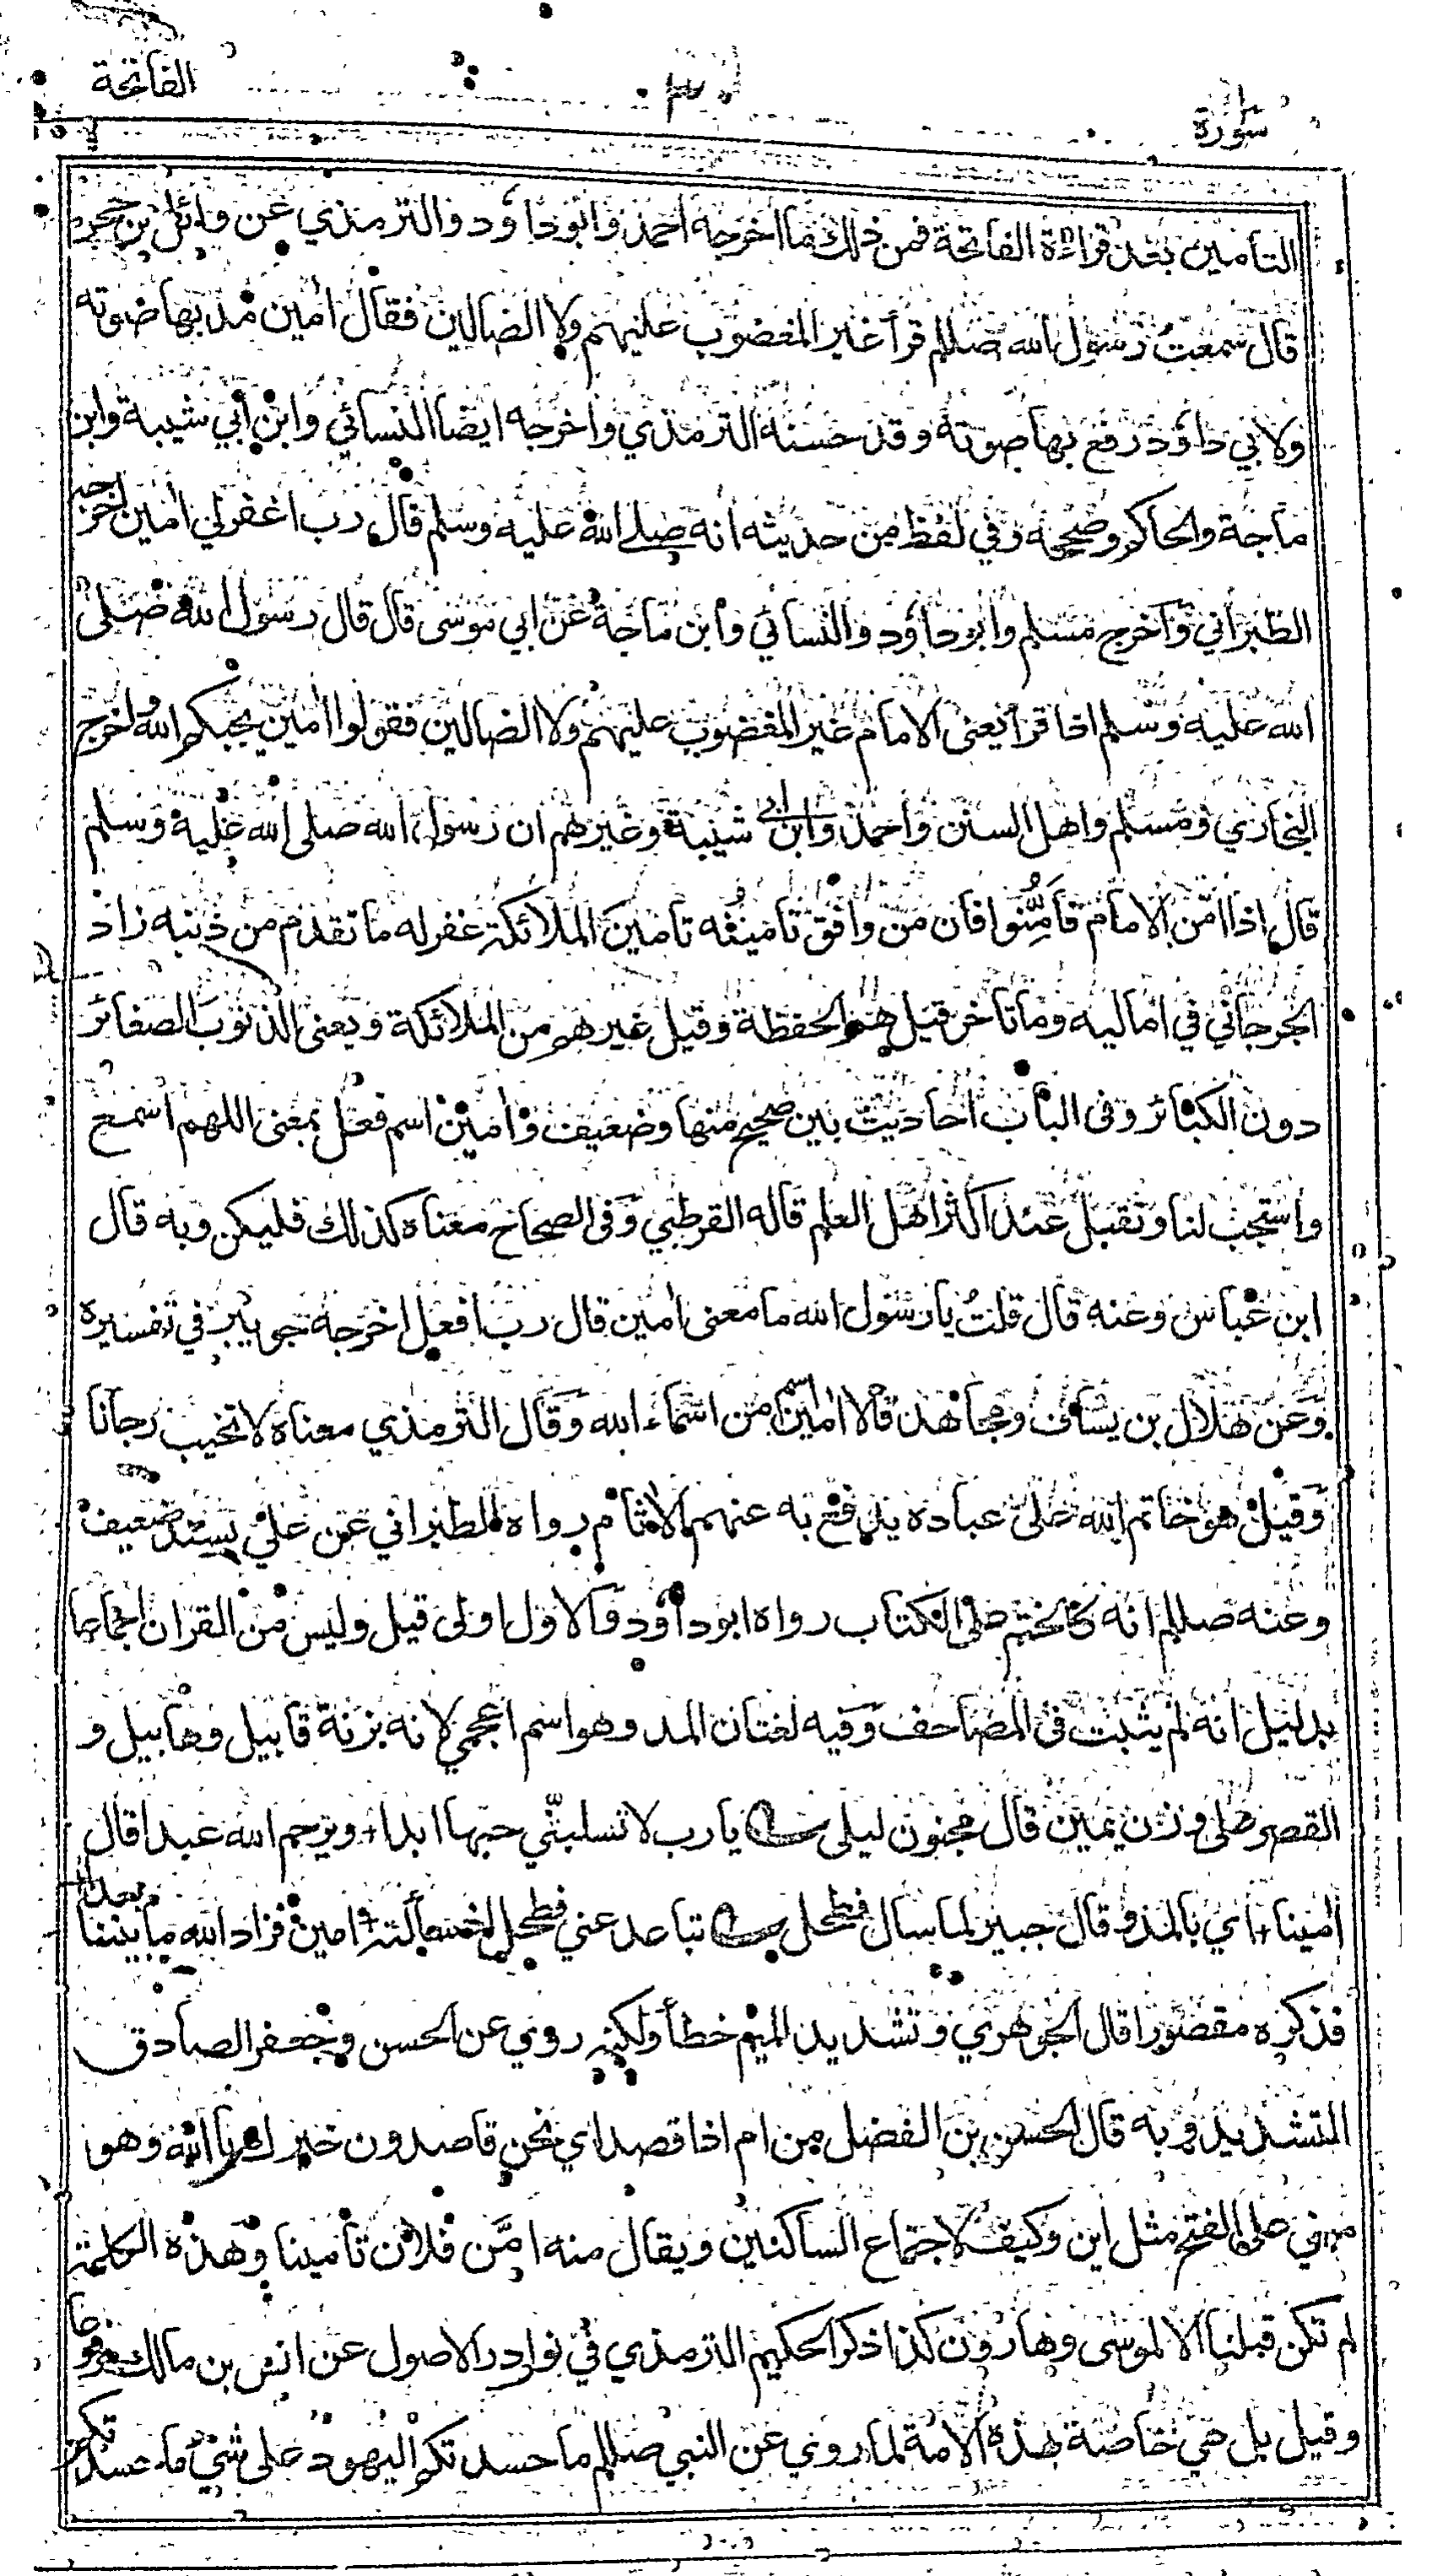 سورة ٣٠ الفاتحة
التأمين بعد قراءة الفاتحة فمن ذلك ما اخرجه احمد وابوداؤد والترمذي عن وائل بن حجر
قال سمعتُ رسول الله صللم قرأ غير المغضوب عليهم ولا الضالين فقال اٰمين مد بها صوته
ولابي داؤد رفع بها صوته وقد حسنه الترمذي واخرجه ايضا النسائي وابن أبي شيبة وابن
ماجة والحاكم وصححه وفي لفظ من حديثه انه صلى الله عليه وسلم قال رب اغفرلي اٰمين اخرجه
الطبراني وٓاخرج مسلم وابوداؤد والنسائي وابن ماجة عن ابي موسى قال قال رسول الله صلى
الله عليه وسلم اذا قرأ يعنى الامام غير المغضوب عليهم ولا الضالين فقولوا اٰمين يجبكم الله واخرج
البخاري ومسلم واهل السنن واحمد وابن ابي شيبة وغيرهم ان رسول الله صلى الله عليه وسلم
قال اذا امّن الامام فأمِّنوا فان من وافق تامينُه تامين الملائكة غفر له ما تقدم من ذنبه زاد
الجرجاني في اماليه وما تاخر قيل هم الحفظة وقيل غيرهم من الملائكة ويعنى الذنوب الصغائر
دون الكبائر وفى الباب احاديث بين صحيح منها وضعيف وٓاٰمين اسم فعل بمعنى اللهم اسمع
واستجب لنا وتقبل عند اكثر اهل العلم قاله القرطبي وٓفى الصحاح معناه كذلك فليكن وبه قال
ابن عباس وعنه قال قلتُ يا رسول الله ما معنى اٰمين قال رب افعل اخرجه جويبر في تفسيره
وٓعن هلال بن يساف ومجاهد قالا اٰمين اسم من اسماء الله وٓقال الترمذي معناه لا تخيب رجآنا
وٓقيل هو خاتم الله على عباده يدفع به عنهم الاثام رواه الطبراني عن علي بسند ضعيف
وعنه صللم انه كالختم على الكتاب رواه ابوداؤد والاول اولى قيل وليس من القران اجماعا
بدليل انه لم يثبت فى المصاحف وٓفيه لغتان المد وهو اسم اعجمي لانه بزنة قابيل وهابيل و
القصر على وزن يمين قال مجنون ليلى ؎ يا رب لا تسلبنّي حبها ابدا + ويرحم الله عبدا قال
اٰمينا + اي بالمد وقال جبير لما سال فطحل ؎ تباعد عني فطحل اذ سألته + امين فزاد الله ما بيننا بعدا +
فذكره مقصورا قال الجوهري وتشديد الميم خطأ ولكنه روي عن الحسن وجعفر الصادق
التشديد وبه قال الحسن بن الفضل من ام اذا قصد اي نحن قاصدون خيرك يا الله وهو
مبني على الفتح مثل اين وكيف لاجتماع الساكنين ويقال منه امّن فلان تأمينا وهذه الكلمة
لم تكن قبلنا الا لموسى وهارون كذا ذكر الحكيم الترمذي في نوادر الاصول عن انس بن مالك مرفوعا
وقيل بل هي خاصة بهذه الامة لما روي عن النبي صللم ما حسدتكم اليهود على شيئ ما حسدتكم